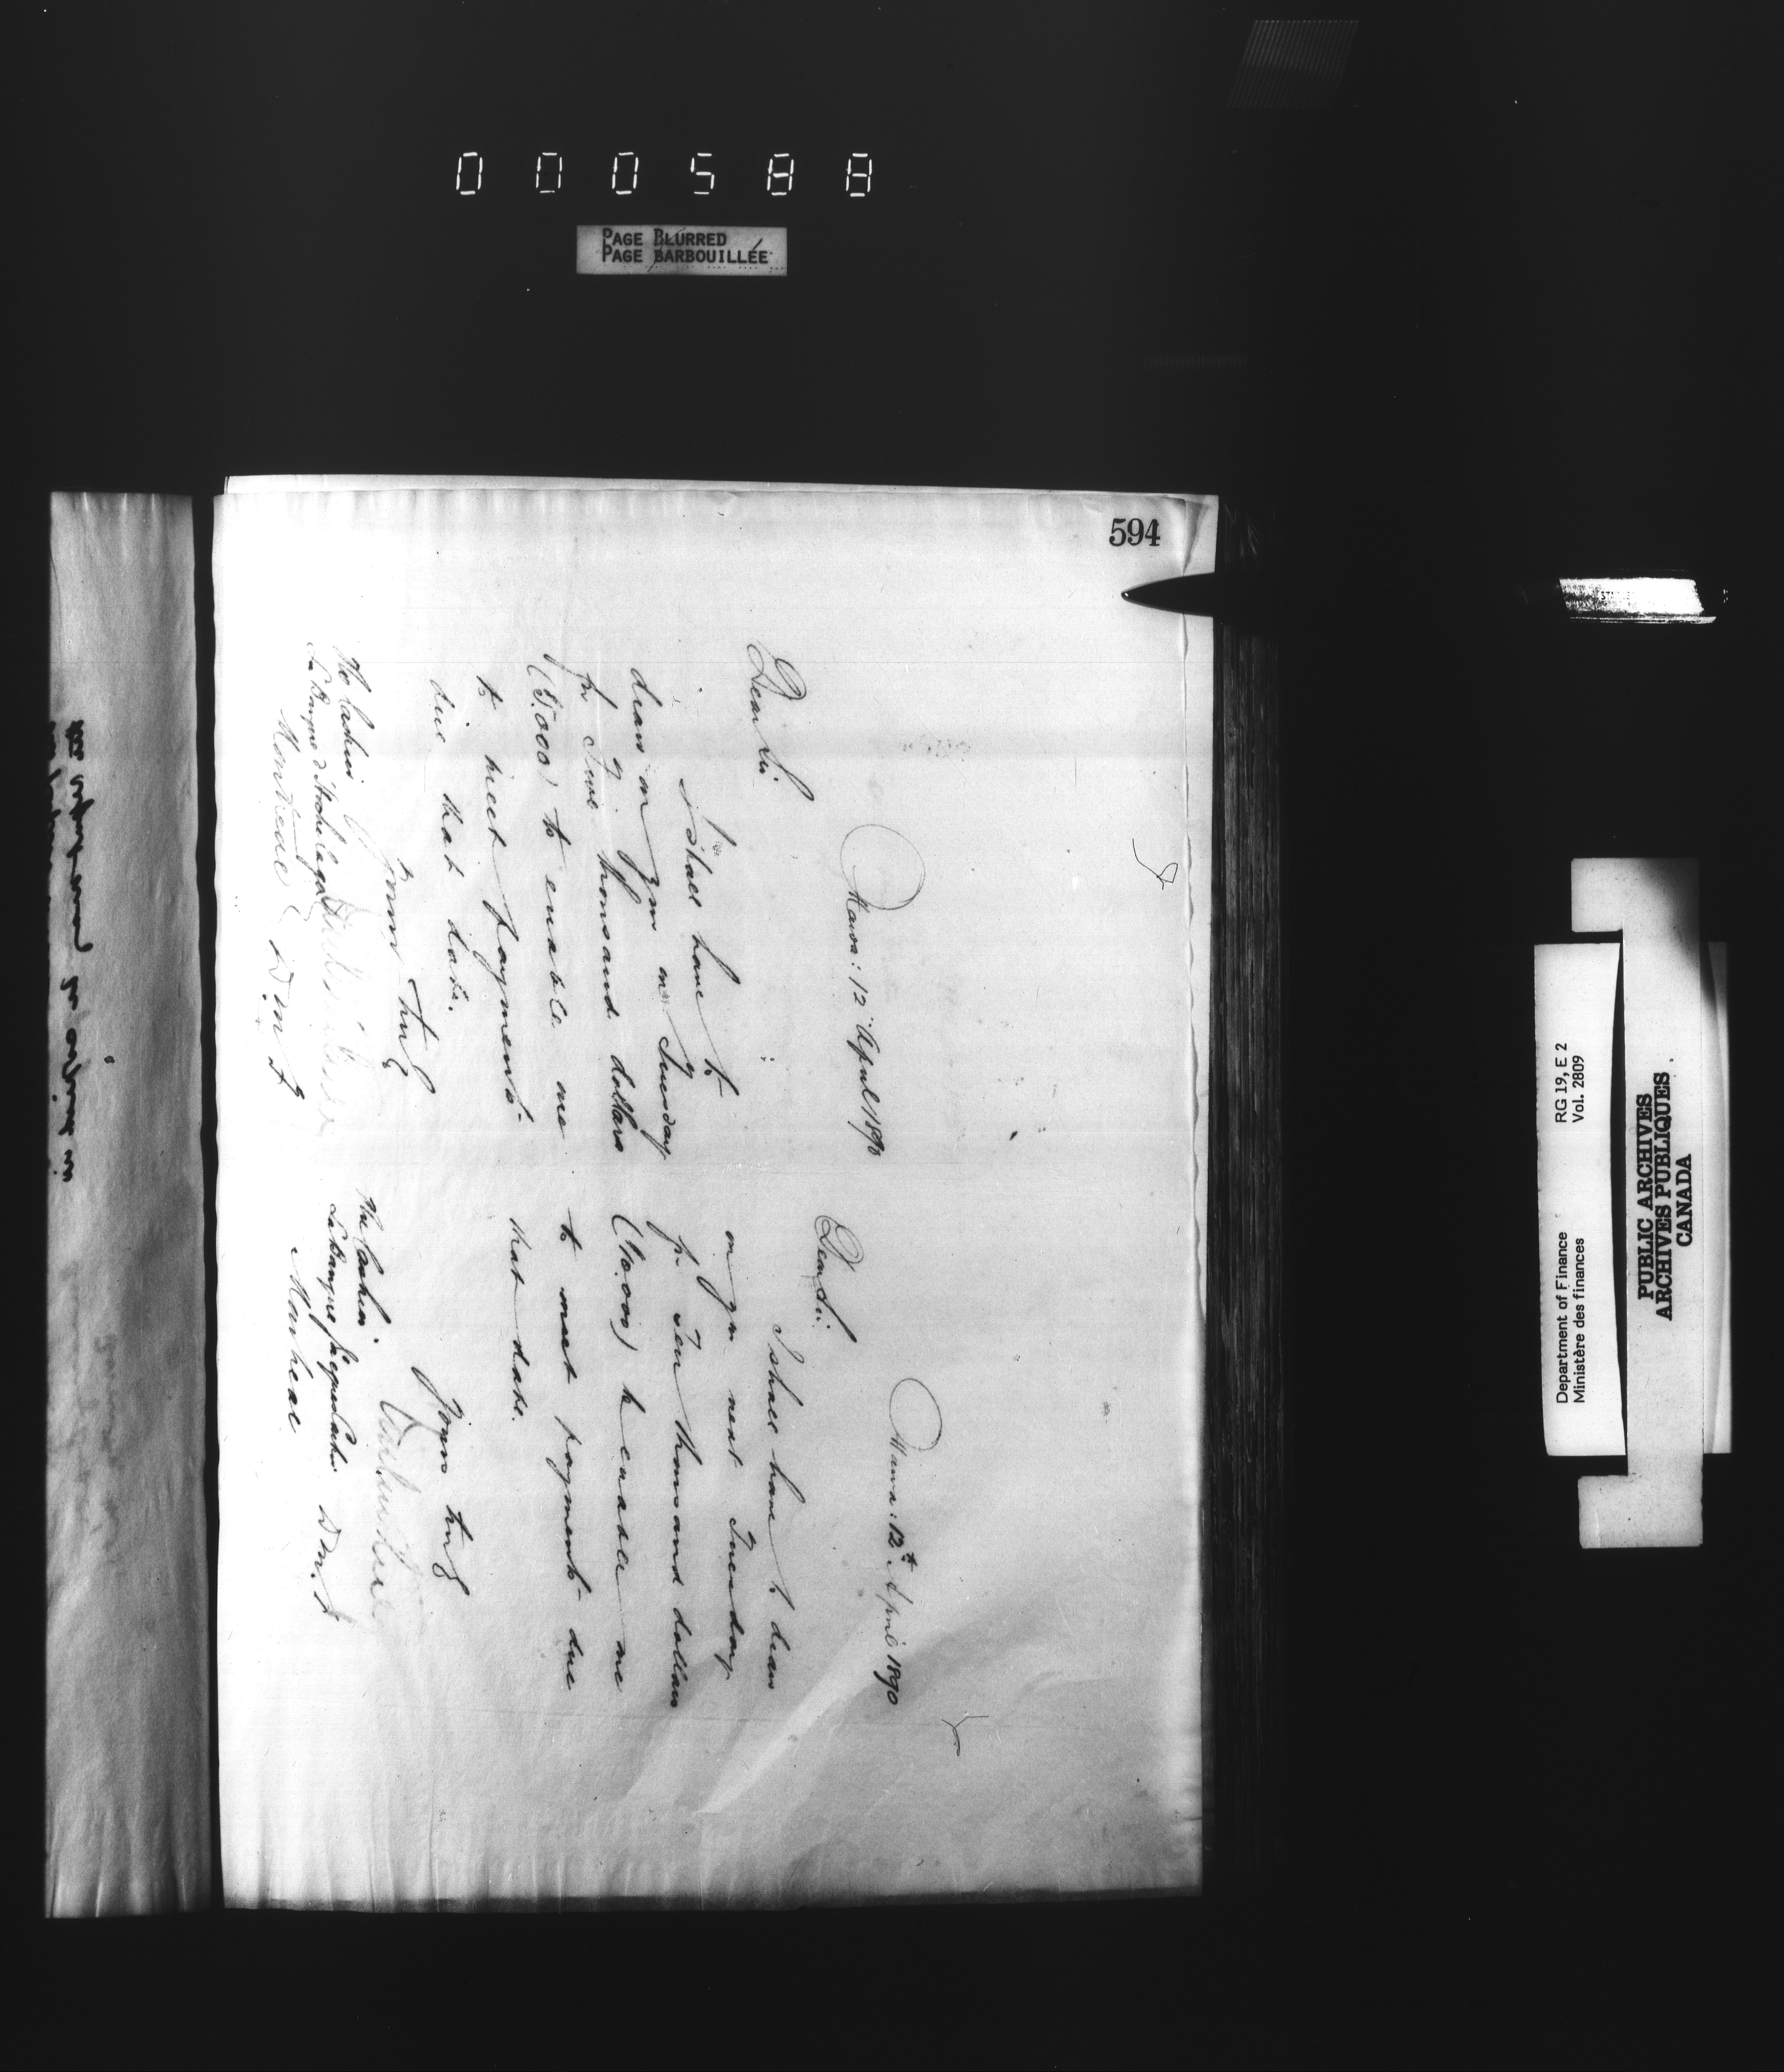 000588
PAGE BLURRED
PAGE BARBOUILLÉE
594
Ottawa: 12 April 1890
Dear Sir
I shall have to
draw on you on Tuesday
for five thousand dollars
(5.000) to enable me
to meet payments
due that date.
Yours truly
The Cashier
La Banque d'Hochelaga
Montreal
D M F
Ottawa: 12th April 1890
Dear Sir.
I shall have to draw
on you next Tuesday
for Ten thousand dollars
(10.000) to enable me
to meet payments due
that date.
Yours truly
The Cashier
La Banque Jacques Cartier
Montreal
D M. F
RG 19, E 2
Vol. 2809
Department of Finance
Ministère des finances
PUBLIC ARCHIVES
ARCHIVES PUBLIQUES
CANADA